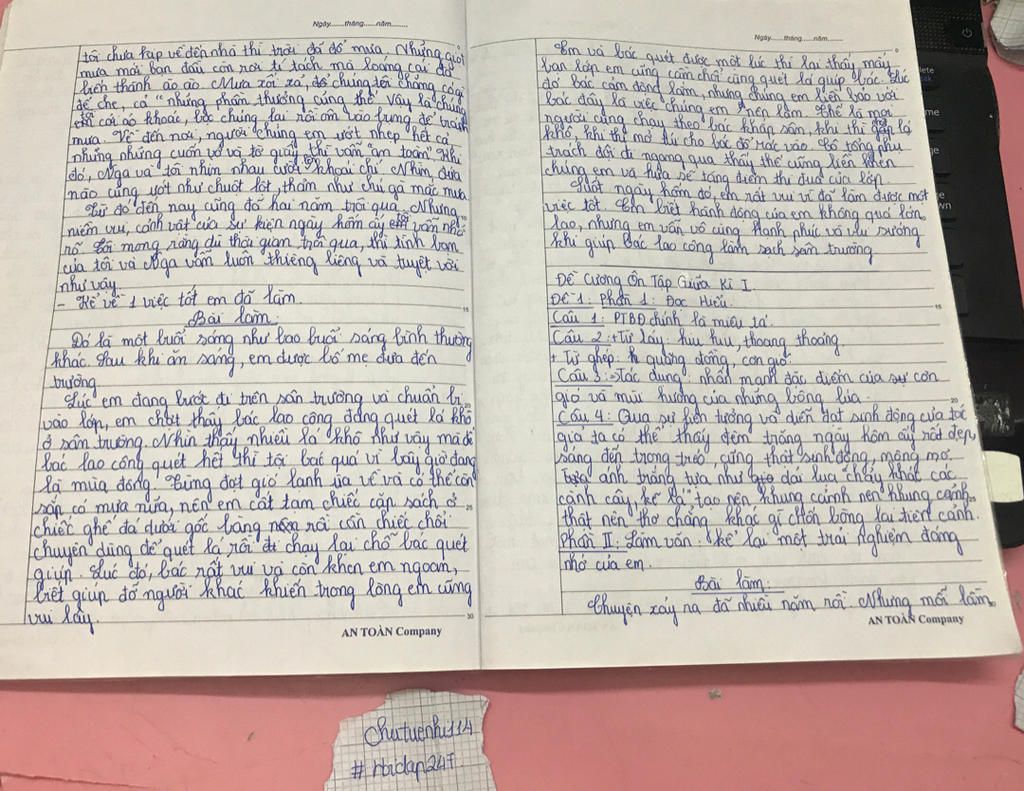 Ngày......tháng......năm........
tôi chưa kịp về đến nhà thì trời đã đổ mưa. Những giọt
mưa mới ban đầu còn rơi tí tách mà loáng cái đã
biến thành ào ào. Mưa xối xả, để chúng tôi chẳng có gì
để che, cả "những phần thưởng cũng thế" vậy là chúng
em cởi áo khoác, bọc chúng lại rồi ôm vào bụng để tránh
mưa.
Về đến nơi, người chúng em ướt nhẹp hết cả
nhưng những cuốn vở và tờ giấy thì vẫn "an toàn". Khi
đó, Nga và tôi nhìn nhau cười khoái chí. Nhìn, đứa
nào cũng ướt như chuột lột, thảm như chú gà mắc mưa
Từ đó đến nay cũng đã hai năm trôi qua. Nhưng
niềm vui, cảnh vật của sự kiện ngày hôm ấy em vẫn nhớ
rõ. Tôi mong rằng dù thời gian trôi qua, thì tình bạn
của tôi và Nga vẫn luôn thiêng liêng và tuyệt vời
như vậy.
- Kể về 1 việc tốt em đã làm.
Bài làm:
Đó là một buổi sáng như bao buổi sáng bình thường
khác. Sau khi ăn sáng, em được bố mẹ đưa đến
trường.
Lúc em đang bước đi trên sân trường và chuẩn bị
vào lớp, em chợt thấy bác lao công đang quét lá khô
ở sân trường. Nhìn thấy nhiều lá khô như vậy mà để
bác lao công quét hết thì tội bác quá vì bây giờ đang
là mùa đông. Từng đợt gió lạnh ùa về và có thể còn
sắp có mưa nữa, nên em cất tạm chiếc cặp sách ở
chiếc ghế đá dưới gốc bàng rồi cần chiếc chổi
chuyên dùng để quét lá rồi đi chạy lại chỗ bác quét
giúp. Lúc đó, bác rất vui và còn khen em ngoan,
biết giúp đỡ người khác khiến trong lòng em cũng
vui lây.
AN TOÀN Company
Ngày......tháng......năm........
Em và bác quét được một lúc thì lại thấy mấy
bạn lớp em cũng cầm chổi cũng quét lá giúp bác. Lúc
đó bác cảm động lắm, nhưng chúng em liền bảo với
bác đây là việc chúng em nên làm. Thế là mọi
người cùng chạy theo bác khắp sân, khi thì gắp lá
khô, khi thì mở túi cho bác đổ rác vào. Cô tổng phụ
trách đội đi ngang qua thấy thế cũng liền khen
chúng em và hứa sẽ tăng điểm thi đua của lớp.
Suốt ngày hôm đó, em rất vui vì đã làm được một
việc tốt. Em biết hành động của em không quá lớn
lao, nhưng em vẫn vô cùng hạnh phúc và vui sướng
khi giúp bác lao công làm sạch sân trường
Đề Cương Ôn Tập Giữa Kì I.
Đề 1: Phần 1: Đọc Hiểu.
Câu 1: PTBĐ chính là miêu tả.
Câu 2: + Từ láy: hiu hiu, thoang thoảng.
+ Từ ghép: quãng đồng, cơn gió.
Câu 3: Tác dụng: nhấn mạnh đặc điểm của sự cơn
gió và mùi hương của những bông lúa.
Câu 4: Qua sự liên tưởng và diễn đạt sinh động của tác
giả ta có thể thấy đêm trăng ngày hôm ấy rất đẹp,
sáng đến trong trẻo, cũng thật sinh động, mộng mơ.
ánh trăng tựa như dải lụa chảy khắc các
cành cây, kẽ lá tạo nên khung cảnh nên khung cảnh
thật nên thơ chẳng khác gì chốn bồng lai tiên cảnh.
Phần II: Làm văn: kể lại một trải nghiệm đáng
nhớ của em.
Bài làm:
Chuyện xảy ra đã nhiều năm rồi. Nhưng mỗi lần
AN TOÀN Company
chutuenhi114
# hoidap247